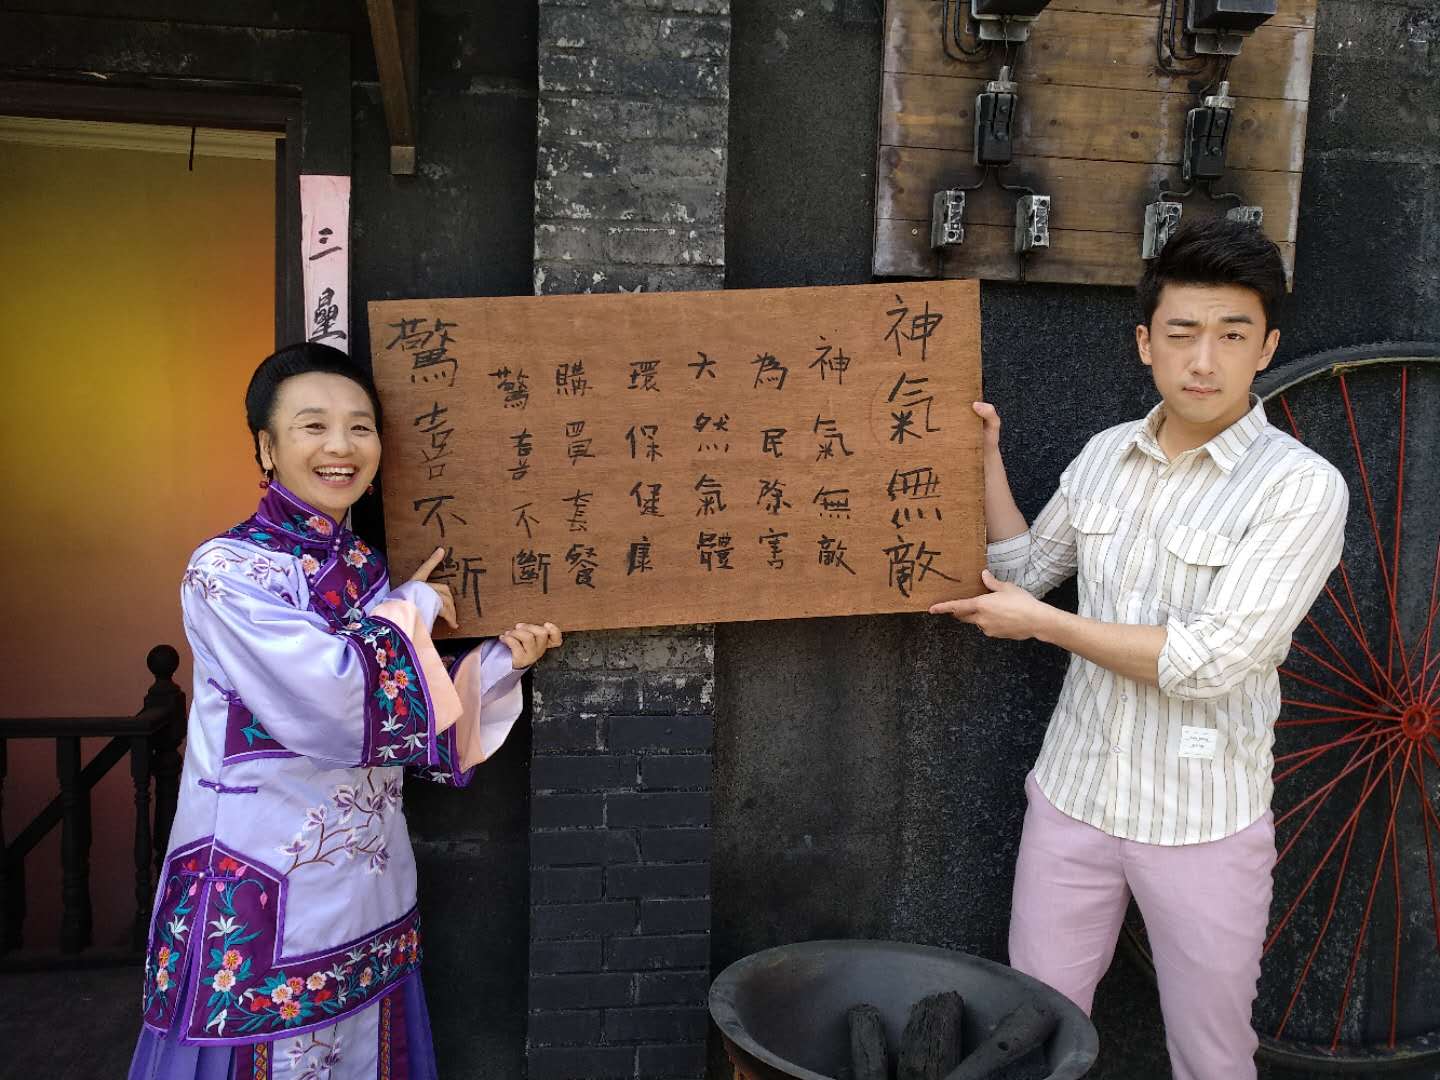 神氣無敵
神氣無敵
為民除害
大然氣體
環保健康
購買套餐
驚喜不斷
驚喜不斷
三星